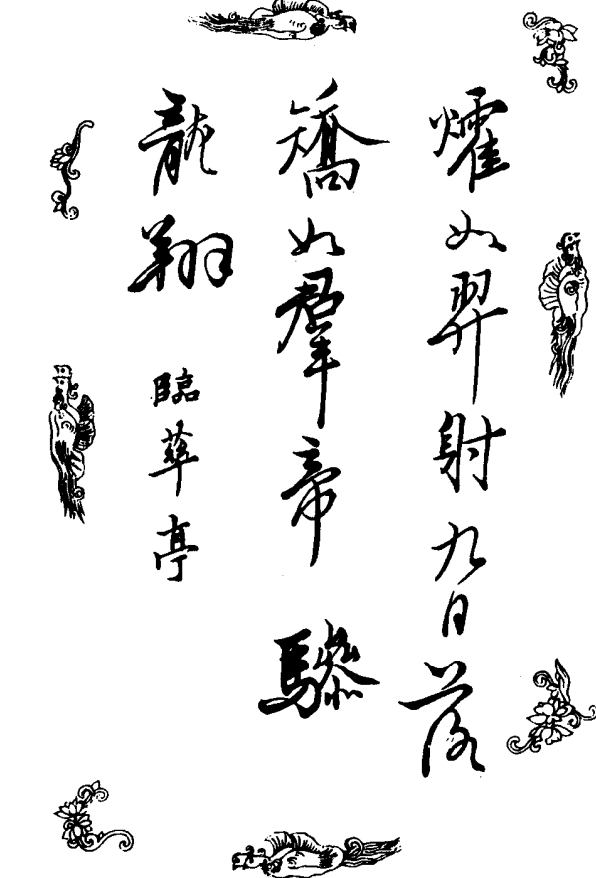 㸌如羿射九日落
矯如羣帝驂
龍翔 臨華亭